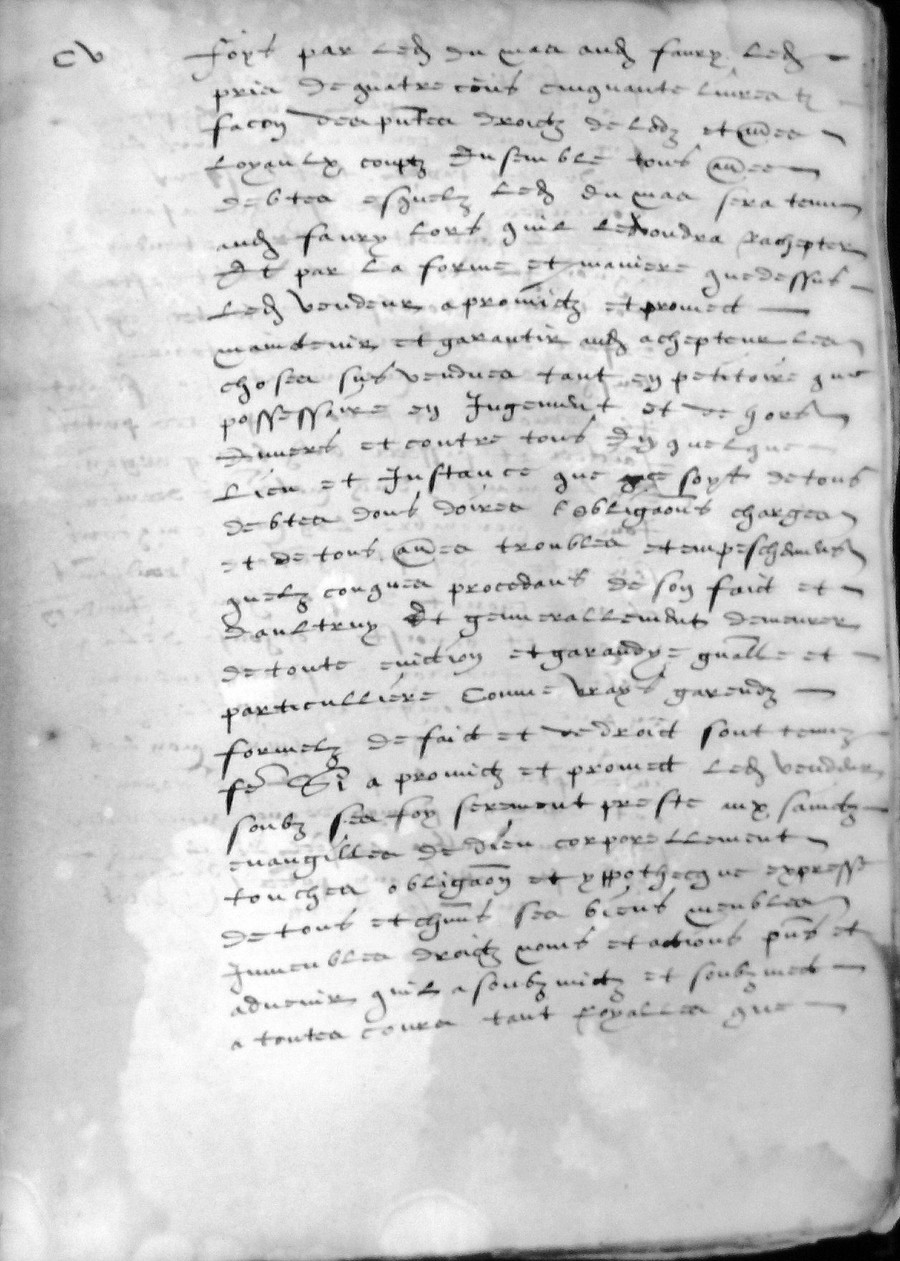 CV
foys par led du mas aud faury led
pris de quatre cens cinquante livres tz
facon des pntes droictz de lodz et aues
loyaulx couptz ensemble tous aues
debtes esquelz led du mas sera tenu
aud faury lors quil le voudra rachepter
Et par la forme et maniere que dessus
led vendeur a promictz et promect
maintenir et garantir aud achepteur les
choses sus vendues tant en petitoire que
possessoire en Jugement et dehors
Envers et contre tous En quelque
lieu et Instance que ce soyt de tous
debtes dons doires obligaons charges
et de tous aues troubles et empeschemens
quelz conques procedans de son faict et
daultruy Et generallement demeurer
de toute eviction et garandye gnalle et
particulliere Comme vrays garendz
formelz de faict et de droict sont tenuz
fe Et a promictz et promect led vendeur
soubz ses foy serement preste aux sainctz
evangilles de dieu corporellement
touches obligaon et yppothecque expresse
de tous et chuns ses biens meubles
Immeubles droictz noms et actions pns et
advenir quil a soubzmictz et soubzmect
a toutes cours tant Royalles que